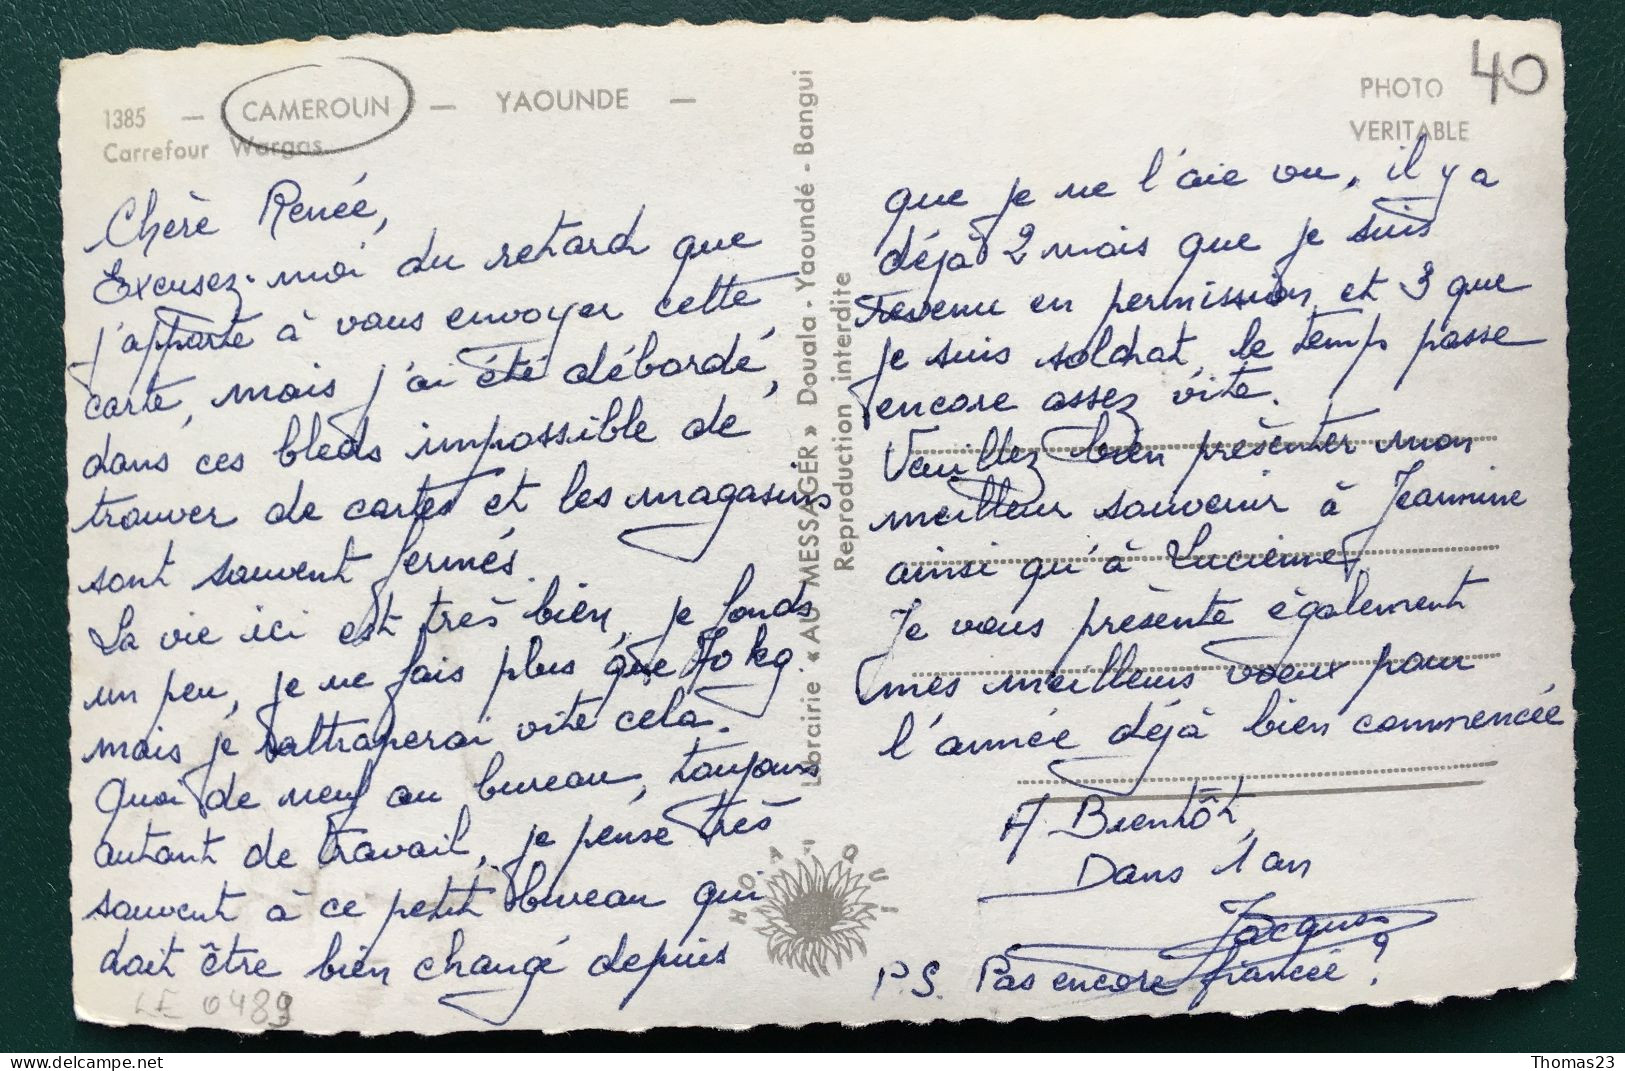 1385 — CAMEROUN — YAOUNDE —
Carrefour Wargas
PHOTO
VERITABLE
40
Chère Renée,
Excusez-moi du retard que
j'apporte à vous envoyer cette
carte, mais j'ai été débordé,
dans ces bleds impossible de
trouver de cartes et les magasins
sont souvent fermés.
La vie ici est très bien, je fonds
un peu, je ne fais plus que 70 kg.
mais je rattraperai vite cela.
Quoi de neuf au bureau, toujours
autant de travail, je pense très
souvent à ce petit bureau qui
doit être bien changé depuis
LE 0489
Librairie « AU MESSAGER » Douala - Yaoundé - Bangui
Reproduction interdite
que je ne l'aie vu, il y a
déjà 2 mois que je suis
revenu en permission et 3 que
je suis soldat, le temps passe
encore assez vite.
Veuillez bien présenter mon
meilleur souvenir à Jeannine
ainsi qu'à Lucienne.
Je vous présente également
mes meilleurs voeux pour
l'année déjà bien commencée
A Bientôt,
Dans 1 an
Jacques
P.S. Pas encore fiancée ?
Thomas23